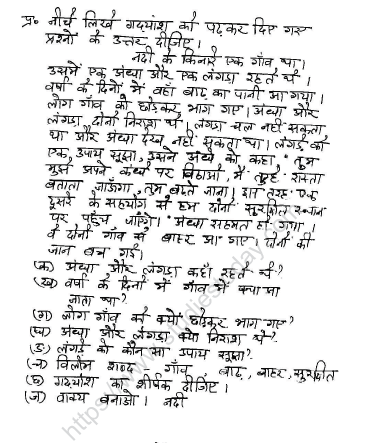 प्र० नीचे लिखे गदयाश को पढ़कर दिए गए
प्रश्नों के उत्तर दीजिए।
नदी के किनारे एक गाँव था।
उसमें एक अंधा और एक लंगड़ा रहते थे।
वर्षा के दिनों में वहाँ बाढ़ का पानी आ गया।
लोग गाँव को छोड़कर भाग गए। अंधा और
लंगड़ा दोनों निराश थे। लंगड़ा चल नहीं सकता
था और अंधा देख नहीं सकता था। लंगड़े को
एक उपाय सूझा, उसने अंधे को कहा "तुम
मुझे अपने कंधों पर बिठाओ, मैं तुम्हें रास्ता
बताता जाऊँगा तुम बढ़ते जाना। इस तरह एक
दूसरे के सहयोग से हम दोनों सुरक्षित स्थान
पर पहुँच जाएँगे। अंधा सहमत हो गया।
वे दोनों गाँव से बाहर आ गए। दोनों की
जान बच गई।
(क) अंधा और लंगड़ा कहाँ रहते थे?
(ख) वर्षा के दिनों में गाँव में क्या आ
जाता था?
(ग) लोग गाँव को क्यों छोड़कर भाग गए?
(घ) अंधा और लंगड़ा क्यों निराश थे?
(ङ) लंगड़े को कौन सा उपाय सूझा?
(च) विलोम शब्द गाँव बाढ़, बाहर, सुरक्षित
(छ) गदयाश का शीर्षक दीजिए।
(ज) वाक्य बनाओ। नदी
https://www.studiestoday.com